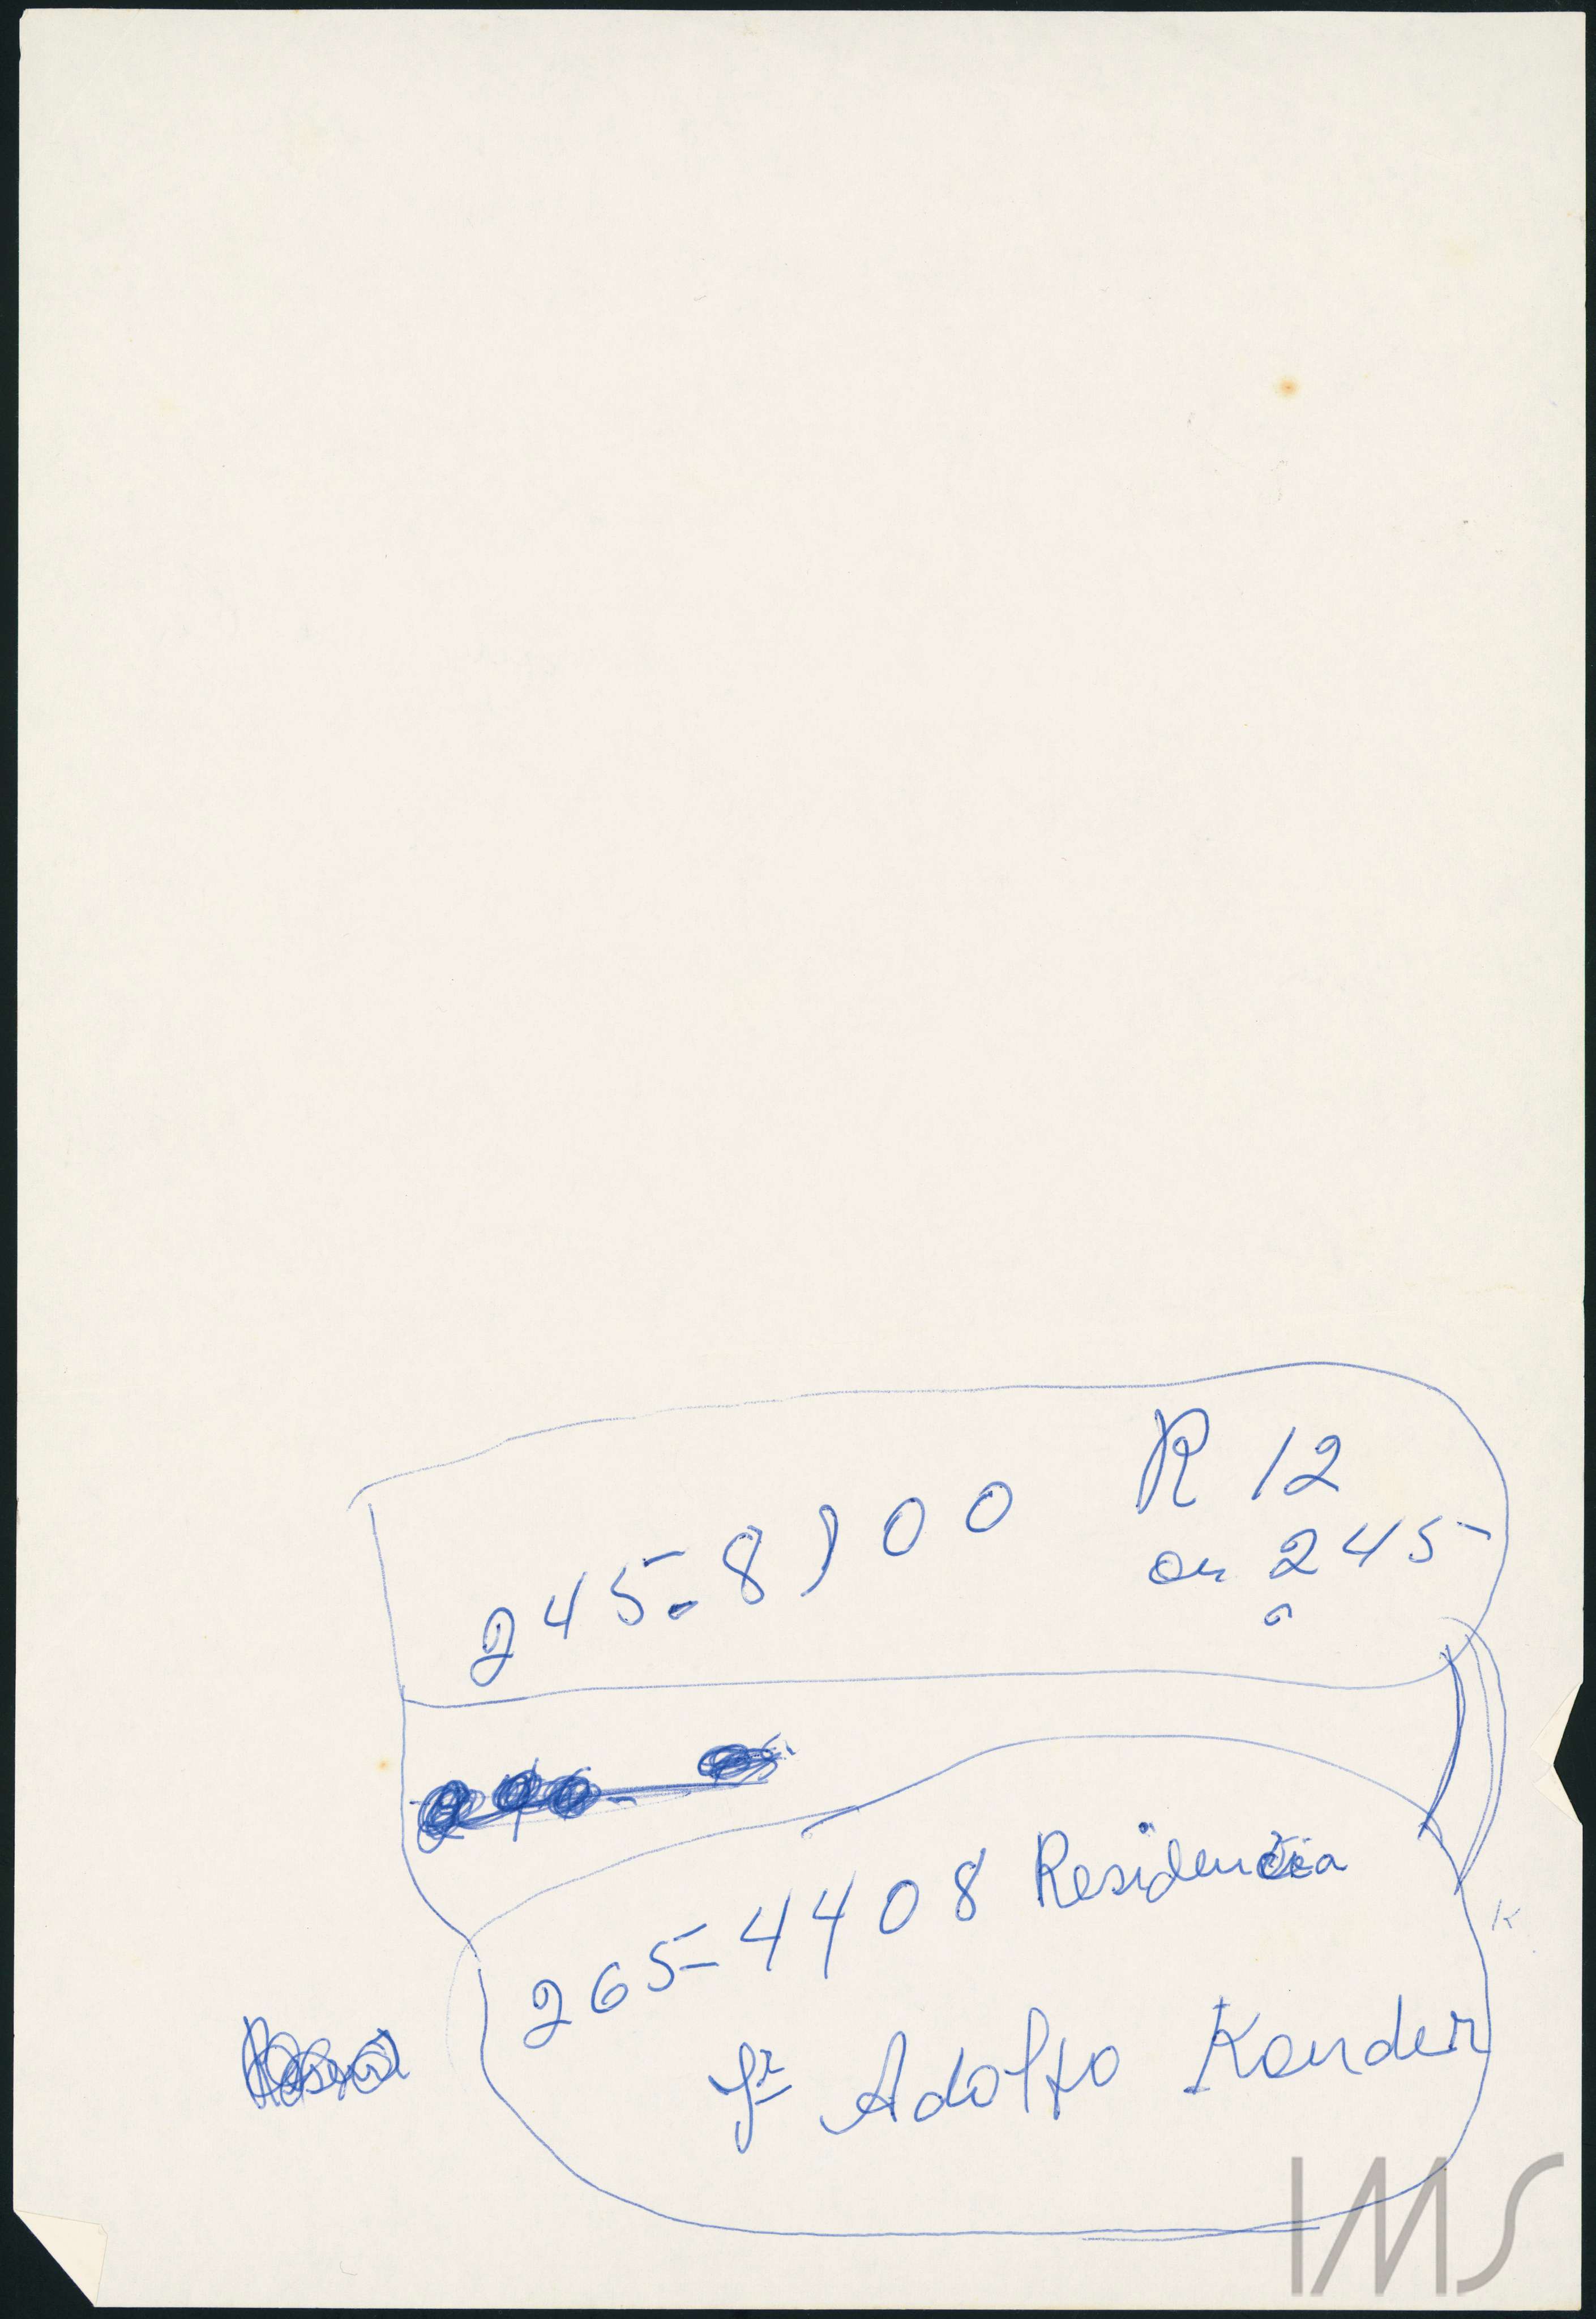 245-8100 R 12
ou 245
265-4408 Residencia
Sr Adolfo Konder
K
IMS